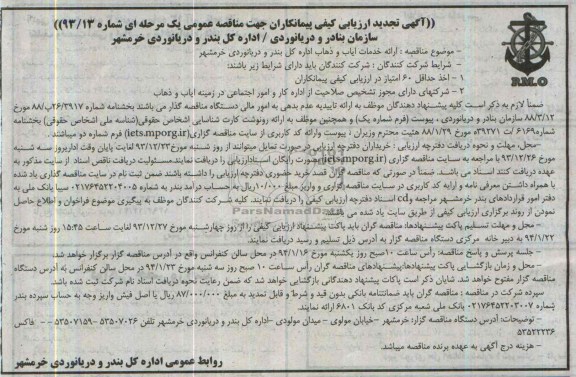 ((آگهی تجدید ارزیابی کیفی پیمانکاران جهت مناقصه عمومی یک مرحله ای شماره ۹۳/۱۳))
سازمان بنادر و دریانوردی / اداره کل بندر و دریانوردی خرمشهر
R.M.O
- موضوع مناقصه : ارائه خدمات ایاب و ذهاب اداره کل بندر و دریانوردی خرمشهر
- شرایط شرکت کنندگان : شرکت کنندگان باید دارای شرایط زیر باشند:
۱ - اخذ حداقل ۶۰ امتیاز در ارزیابی کیفی پیمانکاران
۲ - شرکتهای دارای مجوز تشخیص صلاحیت از اداره کار و امور اجتماعی در زمینه ایاب و ذهاب
ضمناً لازم به ذکر است کلیه پیشنهاد دهندگان موظف به ارائه تاییدیه عدم بدهی به امور مالی دستگاه مناقصه گذار می باشند بخشنامه شماره ۲۶/۳۹۱۷ب/۸۸ مورخ
۸۸/۳/۱۲ سازمان بنادر و دریانوردی ، پیوست (فرم شماره یک) و همچنین موظف به ارائه رونوشت کارت شناسایی اشخاص حقوقی(شناسه ملی اشخاص حقوقی) بخشنامه
شماره ۶۱۶۹/ت۳۹۲۷۱ ه مورخ ۸۸/۱/۲۹ هیئت محترم وزیران ، پیوست وارائه کد کاربری از سایت مناقصه گزاری(iets.mporg.ir) فرم شماره دو میباشند .
-محل، مهلت و نحوه دریافت دفترچه ارزیابی : خریداران دفترچه ارزیابی در صورت تمایل میتوانند از روز شنبه مورخ ۹۳/۱۲/۲۳ لغایت پایان وقت اداریروز سه شنبه
مورخ ۹۳/۱۲/۲۶ با مراجعه به سایت مناقصه گزاری (iets.mporg.ir) بصورت رایگان اسنادارزیابی را دریافت نمایند.مسئولیت دریافت ناقص اسناد از سایت مذکور به
عهده دریافت کنند اسناد می باشد. ضمناً در صورتی که مناقصه گران قصد خرید حضوری دفترچه ارزیابی را داشته باشند ضمن ثبت نام در سایت مناقصه گذاری یاد شده
با همراه داشتن معرفی نامه و ارایه کد کاربری در سایت مناقصه گزاری و واریز مبلغ ۱۰/۰۰۰ریال به حساب درآمد بندر به شماره ۰۲۱۷۶۴۵۲۲۰۴۰۰۵ سیبا بانک ملی به
دفتر امور قراردادهای بندر خرمشهر مراجعه و cd اسناد دفترچه ارزیابی کیفی را دریافت نمایند. کلیه شرکت کنندگان موظف به پیگیری موضوع فراخوان و اطلاع حاصل
نمودن از روند برگزاری ارزیابی کیفی از طریق سایت یاد شده می باشند.
- محل و مهلت تسلیم پاکت پیشنهادها: مناقصه گران باید پاکت پیشنهادات ارزیابی کیفی را از روز چهارشنبه مورخ ۹۳/۱۲/۲۷ لغایت ساعت ۱۵:۴۵ روز شنبه مورخ
۹۴/۱/۲۲ به دبیر خانه مرکزی دستگاه مناقصه گزار به آدرس ذیل تسلیم و رسید دریافت نمایند.
- جلسه پرسش و پاسخ مناقصه: رأس ساعت ۱۰صبح روز یکشنبه مورخ ۹۴/۱/۱۶ در محل سالن کنفرانس واقع در آدرس مناقصه گزار برگزار خواهد شد.
- محل و زمان بازگشایی پاکت پیشنهادها:پیشنهادهای مناقصه گران رأس ساعت ۱۰ صبح روز سه شنبه مورخ ۹۴/۱/۲۳ در محل سالن کنفرانس به آدرس دستگاه
مناقصه گزار مفتوح خواهد شد. شایان ذکر است پاکات پیشنهاد دهندگانی بازگشایی خواهد شد که ضمن رعایت نحوه دریافت اسناد نام شرکت ثبت شده باشد.
سپرده شرکت در مناقصه : مناقصه گران باید ضمانتنامه بانکی بدون قید و شرط و قابل تمدید به مبلغ ۸۷/۰۰۰/۰۰۰ ریال یا اصل فیش واریز وجه به حساب سپرده بندر
شماره ۰۲۱۷۶۴۵۲۲۰۳۰۰۷ بانک ملی شعبه مرکزی کد بانک ۶۸۰۱ ارائه نمایند.
- توضیحات: آدرس دستگاه مناقصه گزار: خرمشهر -خیابان مولوی - میدان مولوی -اداره کل بندر و دریانوردی خرمشهر تلفن ۵۳۵۰۷۰۲۶ -۵۳۵۰۷۱۵۹ - - فاکس
۵۳۵۲۲۲۳۶
- هزینه درج آگهی به عهده برنده مناقصه میباشد.
روابط عمومی اداره کل بندر و دریانوردی خرمشهر